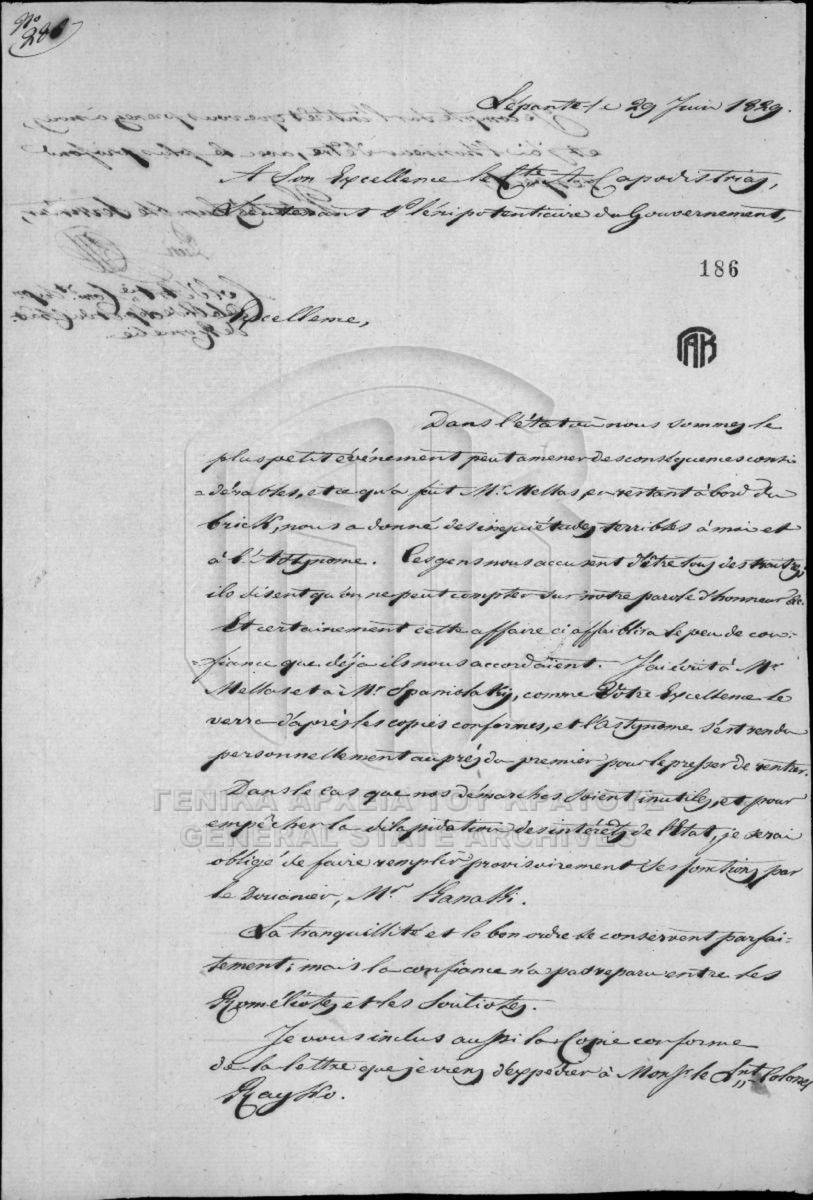 Nº 286
Lépante le 29 Juin 1829.
A Son Excellence le Cte A. Capodistrias,
Lieutenant Plénipotentiaire du Gouvernement,
186
Excellence,
ΓΑΚ
Dans l'état où nous sommes le
plus petit événement peut amener des conséquences consi-
=dérables, et ce qu'a fait Mr. Mellas, en restant à bord du
brick, nous a donné des inquiétudes terribles à moi et
à l'Astynome. Ces gens nous accusent d'être tous des traitres,
ils disent qu'on ne peut compter sur notre parole d'honneur &c.
Et certainement cette affaire ci affaiblira le peu de con-
fiance que déja ils nous accordaient. J'ai écrit à Mr
Mellas et à Mr Spaniolaky, comme Votre Excellence le
verra d'après les copies conformes, et l'Astynome s'est rendu
personnellement auprès du premier pour le presser de rentrer.
Dans le cas que nos démarches soient inutiles, et pour
ΓΕΝΙΚΑ ΑΡΧΕΙΑ ΤΟΥ ΚΡΑΤΟΥΣ
empêcher la dilapidation des intérêts de l'Etat, je serai
GENERAL STATE ARCHIVES
obligé de faire remplir provisoirement ses fonctions par
le Douanier, Mr
La tranquillité et le bon ordre se conservent parfai-
tement; mais la confiance n'a pas reparu entre les
Roméliotes et les Souliotes.
Je vous inclus aussi la Copie conforme
de la lettre que je viens d'expédier à Monsr le Lnt Colonel
Rayko.